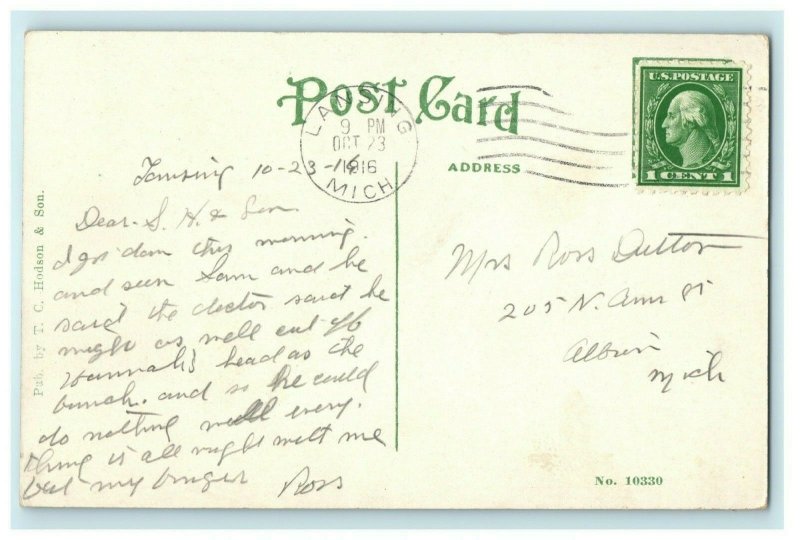 Post Card
U.S. POSTAGE
1 CENT 1
LANSING
9 PM
OCT 23
1916
MICH
ADDRESS
Lansing 10-23-16
Dear S. H. & Son
I got down this morning.
and seen Sam and he
said the doctor said he
might as well cut off
Hannah's head as the
bunch. and so he could
do nothing well every.
thing is all right with me
but my finger
Ross
Mrs Ross Dutton
205 N. Ann St
Albion
Mich
Pub. by T. C. Hodson & Son.
No. 10330